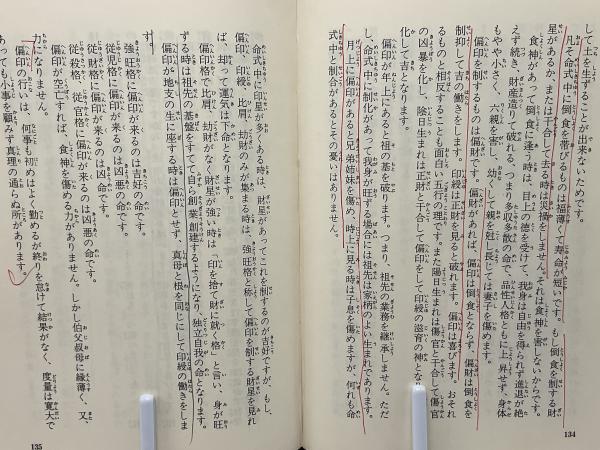 して土を生ずることが出来ないためです。
凡そ命式中に倒食を帯びるものは福薄く、寿命が短いです。もし倒食を制する財
星があるか、または干合して去る時は災禍をしません。それは食神を害しないからです。
食神があって倒食に逢う時は、目上の徳を受けて、我身は自由を得られず進退が絶
えず続き、財産造りて破れる、つまり多成多散の命で、品性人格ともに上昇せず、身体
もやや小さく、六親を害し、幼くして親を剋し長じては妻子を傷めます。
偏印を制するものは偏財です。偏財があれば、偏印は倒食とならず、偏財は倒食を
制抑して吉の働きをします。印綬は正財を見ると破れます。偏印は喜びます。おそれ
るものと相反することも面白い五行の理です。また陽日生まれは傷官と干合して傷官
の凶暴を化し、陰日生まれは正財と干合して偏印をして印綬の滋育の神とな
化して吉となります。
偏印が年上にあると祖の基を破ります。つまり、祖先の業務を継承しません。ただ
し、命式中に制化があって我身が旺ずる場合には祖先は家柄のよい生まれであります。
月上に偏印があると兄弟姉妹を傷め、時上に見る時は子息を傷めますが、何れも命
式中と制合があるとその憂いはありません。
134
命式中に偏印星が多くある時は、財星があってこれを制するのが吉好ですが、もし、
偏印、印綬、比肩、劫財のみが集まる時は、強旺格と称して偏印を制する財星を見れ
ば、却って運気は下命となります。
偏印格で比肩、劫財がなく財星が強い時は「印を捨て財に就く格」と言い、身が旺
ずる時は祖先の基盤をすてて自ら創業、創建するようになり、独立自我の命となります。
偏印が地支の生に座する時は偏印とせず、真母と根を同じにして印綬の働きをしま
す。
強旺格に偏印が来るのは吉好の命です。
従児格に偏印が来るのは凶悪の命です。
従財格に偏印が来るのは凶悪の命です。
従殺格、従官格に偏印が来るのは凶悪の命です。
偏印が空亡すれば、食神を傷める力がありません。しかし伯父叔母に縁薄く、又、
力になりません。
偏印の行いは、何事も初めはよく勤めるが終りを怠けて結果がなく、度量は寛大で
あっても小事を顧みず真理の通らぬ所があります。
135